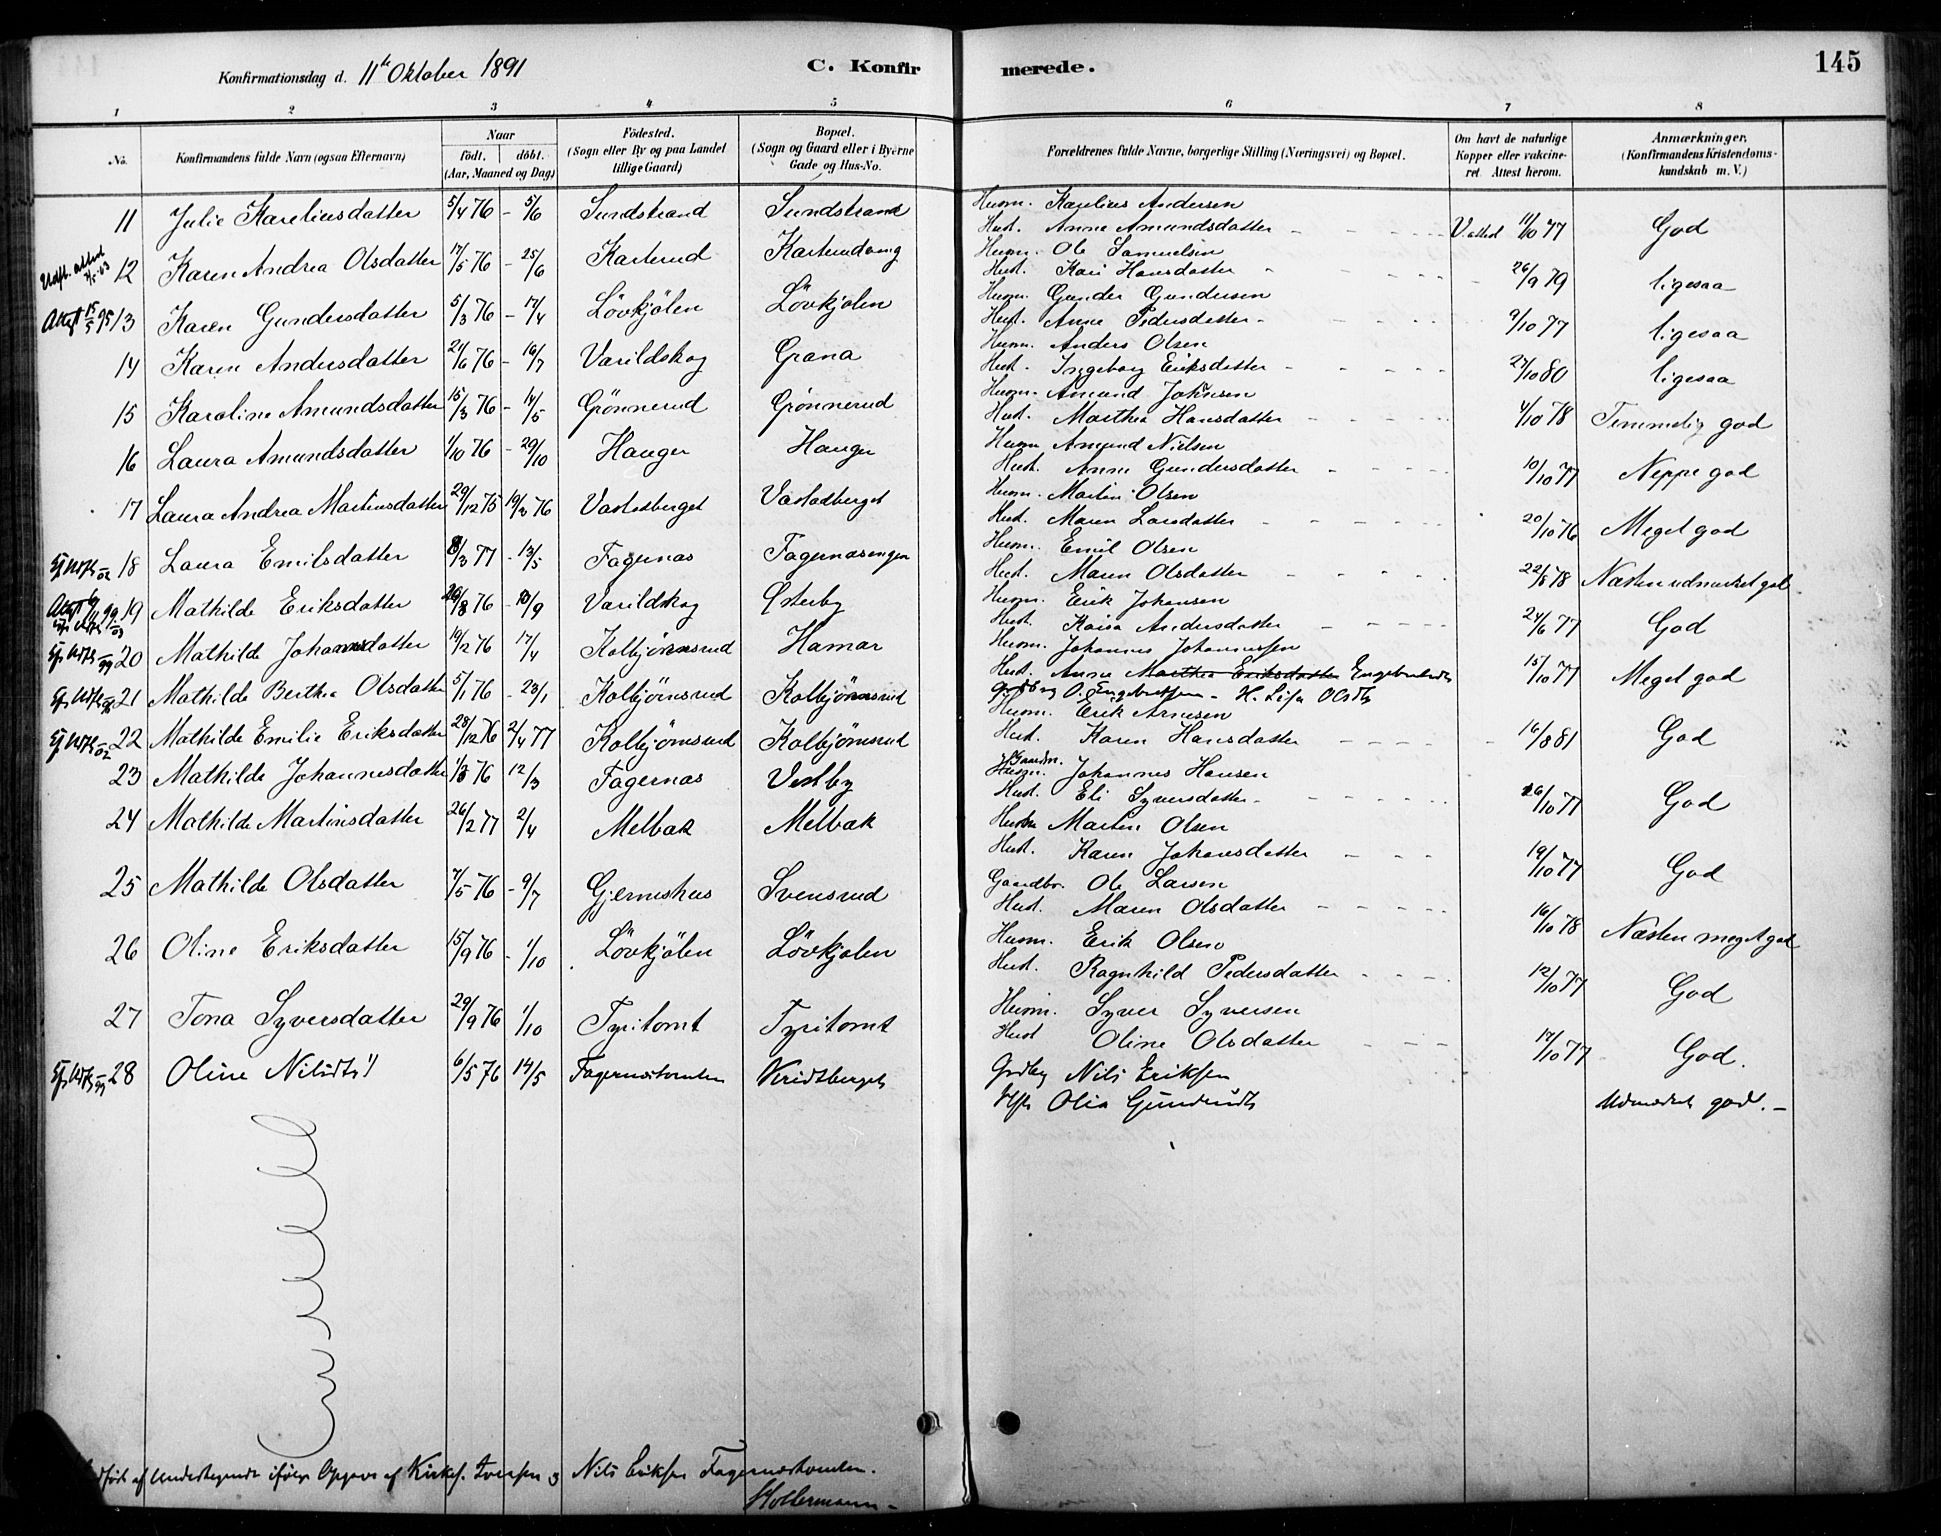 Konfirmationsdag d. 11te Oktober 1891
C. Konfirmerede.
145
1 2 3 4 5 6 7 8
No. Konfirmandens fulde Navn (ogsaa Efternavn) Naar født. døbt. (Aar, Maaned og Dag) Födested. (Sogn eller By og paa Landet tillige Gaard) Bopæl. (Sogn og Gaard eller i Byerne Gade og Hus-No. Forældrenes fulde Navne, borgerlige Stilling (Næringsvei) og Bopæl. Om havt de naturlige Kopper eller vaccineret. Attest herom. Anmærkninger, (Konfirmandens Kristendomskundskab m. V.)
11 Julie Kareliusdatter 5/4 76 - 5/6 Sundstrand Sundstrand Husm. Karelius Andersen
Hust. Anne Amundsdatter V. attest 11/10 77 God
12 Karen Andrea Olsdatter 17/5 76 - 25/6 Karterud Karterudeng Husm. Ole Samuelsen
Hust. Kari Hansdatter 26/9 79 ligesaa
Attest 15/5 95 13 Karen Gundersdatter 5/3 76 - 17/4 Lövkjölen Lövkjölen Husm. Gunder Gundersen
Hust. Anne Pedersdatter 9/10 77 ligesaa
14 Karen Andersdatter 21/6 76 - 16/7 Varildskog Grana Husm. Anders Olsen
Hust. Ingeborg Eriksdatter 27/10 80 ligesaa
15 Karoline Amundsdatter 15/3 76 - 14/5 Grönnerud Grönnerud Husm. Amund Johnsen
Hust. Marthea Hansdatter 4/10 78 Temmelig god
16 Laura Amundsdatter 1/10 76 - 29/10 Hauger Hauger Husm. Amund Nielsen
Hust. Anne Gundersdatter 10/10 77 Neppe god
17 Laura Andrea Martinsdatter 29/12 75 19/3 76 Vastadberget Vastadberget Husm. Martin Olsen
Hust. Maren Larsdatter 20/10 76 Meget god
18 Laura Emilsdatter 8/3 77 - 13/5 Fagernas Fagernasengen Husm. Emil Olsen
Hust. Maren Olsdatter 22/8 78 Næsten udmerket god
19 Mathilde Eriksdatter 20/8 76 - 10/9 Varildskog Østerby Husm. Erik Johansen
Hust. Kaisa Andersdatter 24/6 77 God
20 Mathilde Johannesdatter 19/2 76 17/4 Kolbjörnsrud Hamar Husm. Johannes Johannessen
Hust. Anne Marthea Eriksdatter Engebretsdtr 15/10 77 Meget god
21 Mathilde Berthea Olsdatter 5/1 76 - 23/1 Kolbjörnsrud Kolbjörnsrud O. Engebretsen - H. Lisa Olsdtr
22 Mathilde Emilie Eriksdatter 28/12 76 2/4 77 Kolbjörnsrud Kolbjörnsrud Husm. Erik Arnesen
Hust. Karen Hansdatter 16/8 81 God
23 Mathilde Johannesdatter 1/3 76 12/3 Fagernas Vestby Gaardm. Husm. Johannes Hansen
Hust. Eli Syversdatter 26/10 77 God
24 Mathilde Martinsdatter 26/2 77 2/4 Melbak Melbak Husm. Martin Olsen
Hust. Karen Johansdatter 19/10 77 God
25 Mathilde Olsdatter 7/5 76 - 9/7 Gjerneshus Svensrud Gaardbr. Ole Larsen
Hust. Maren Olsdatter 16/10 78 Næsten meget god
26 Oline Eriksdatter 15/9 76 - 1/10 Lövkjölen Lövkjolen Husm. Erik Olsen
Hust. Ragnhild Pedersdatter 12/10 77 God
27 Tona Syversdatter 29/9 76 1/10 Tyritomt Tyritomt Husm. Syver Syversen
Hust Oline Olsdatter 17/10 77 God.
28 Oline Nilsdtr 1) 6/5 76 14/5 Fagernæstomten Kridtberget Grdbg Nils Eriksen
Olia Gundersdtr Udmærket god. -
af Undertegnede ifølge Opgave af Kirkes. Iversen og Nils Eriksen Fagernæstomten.